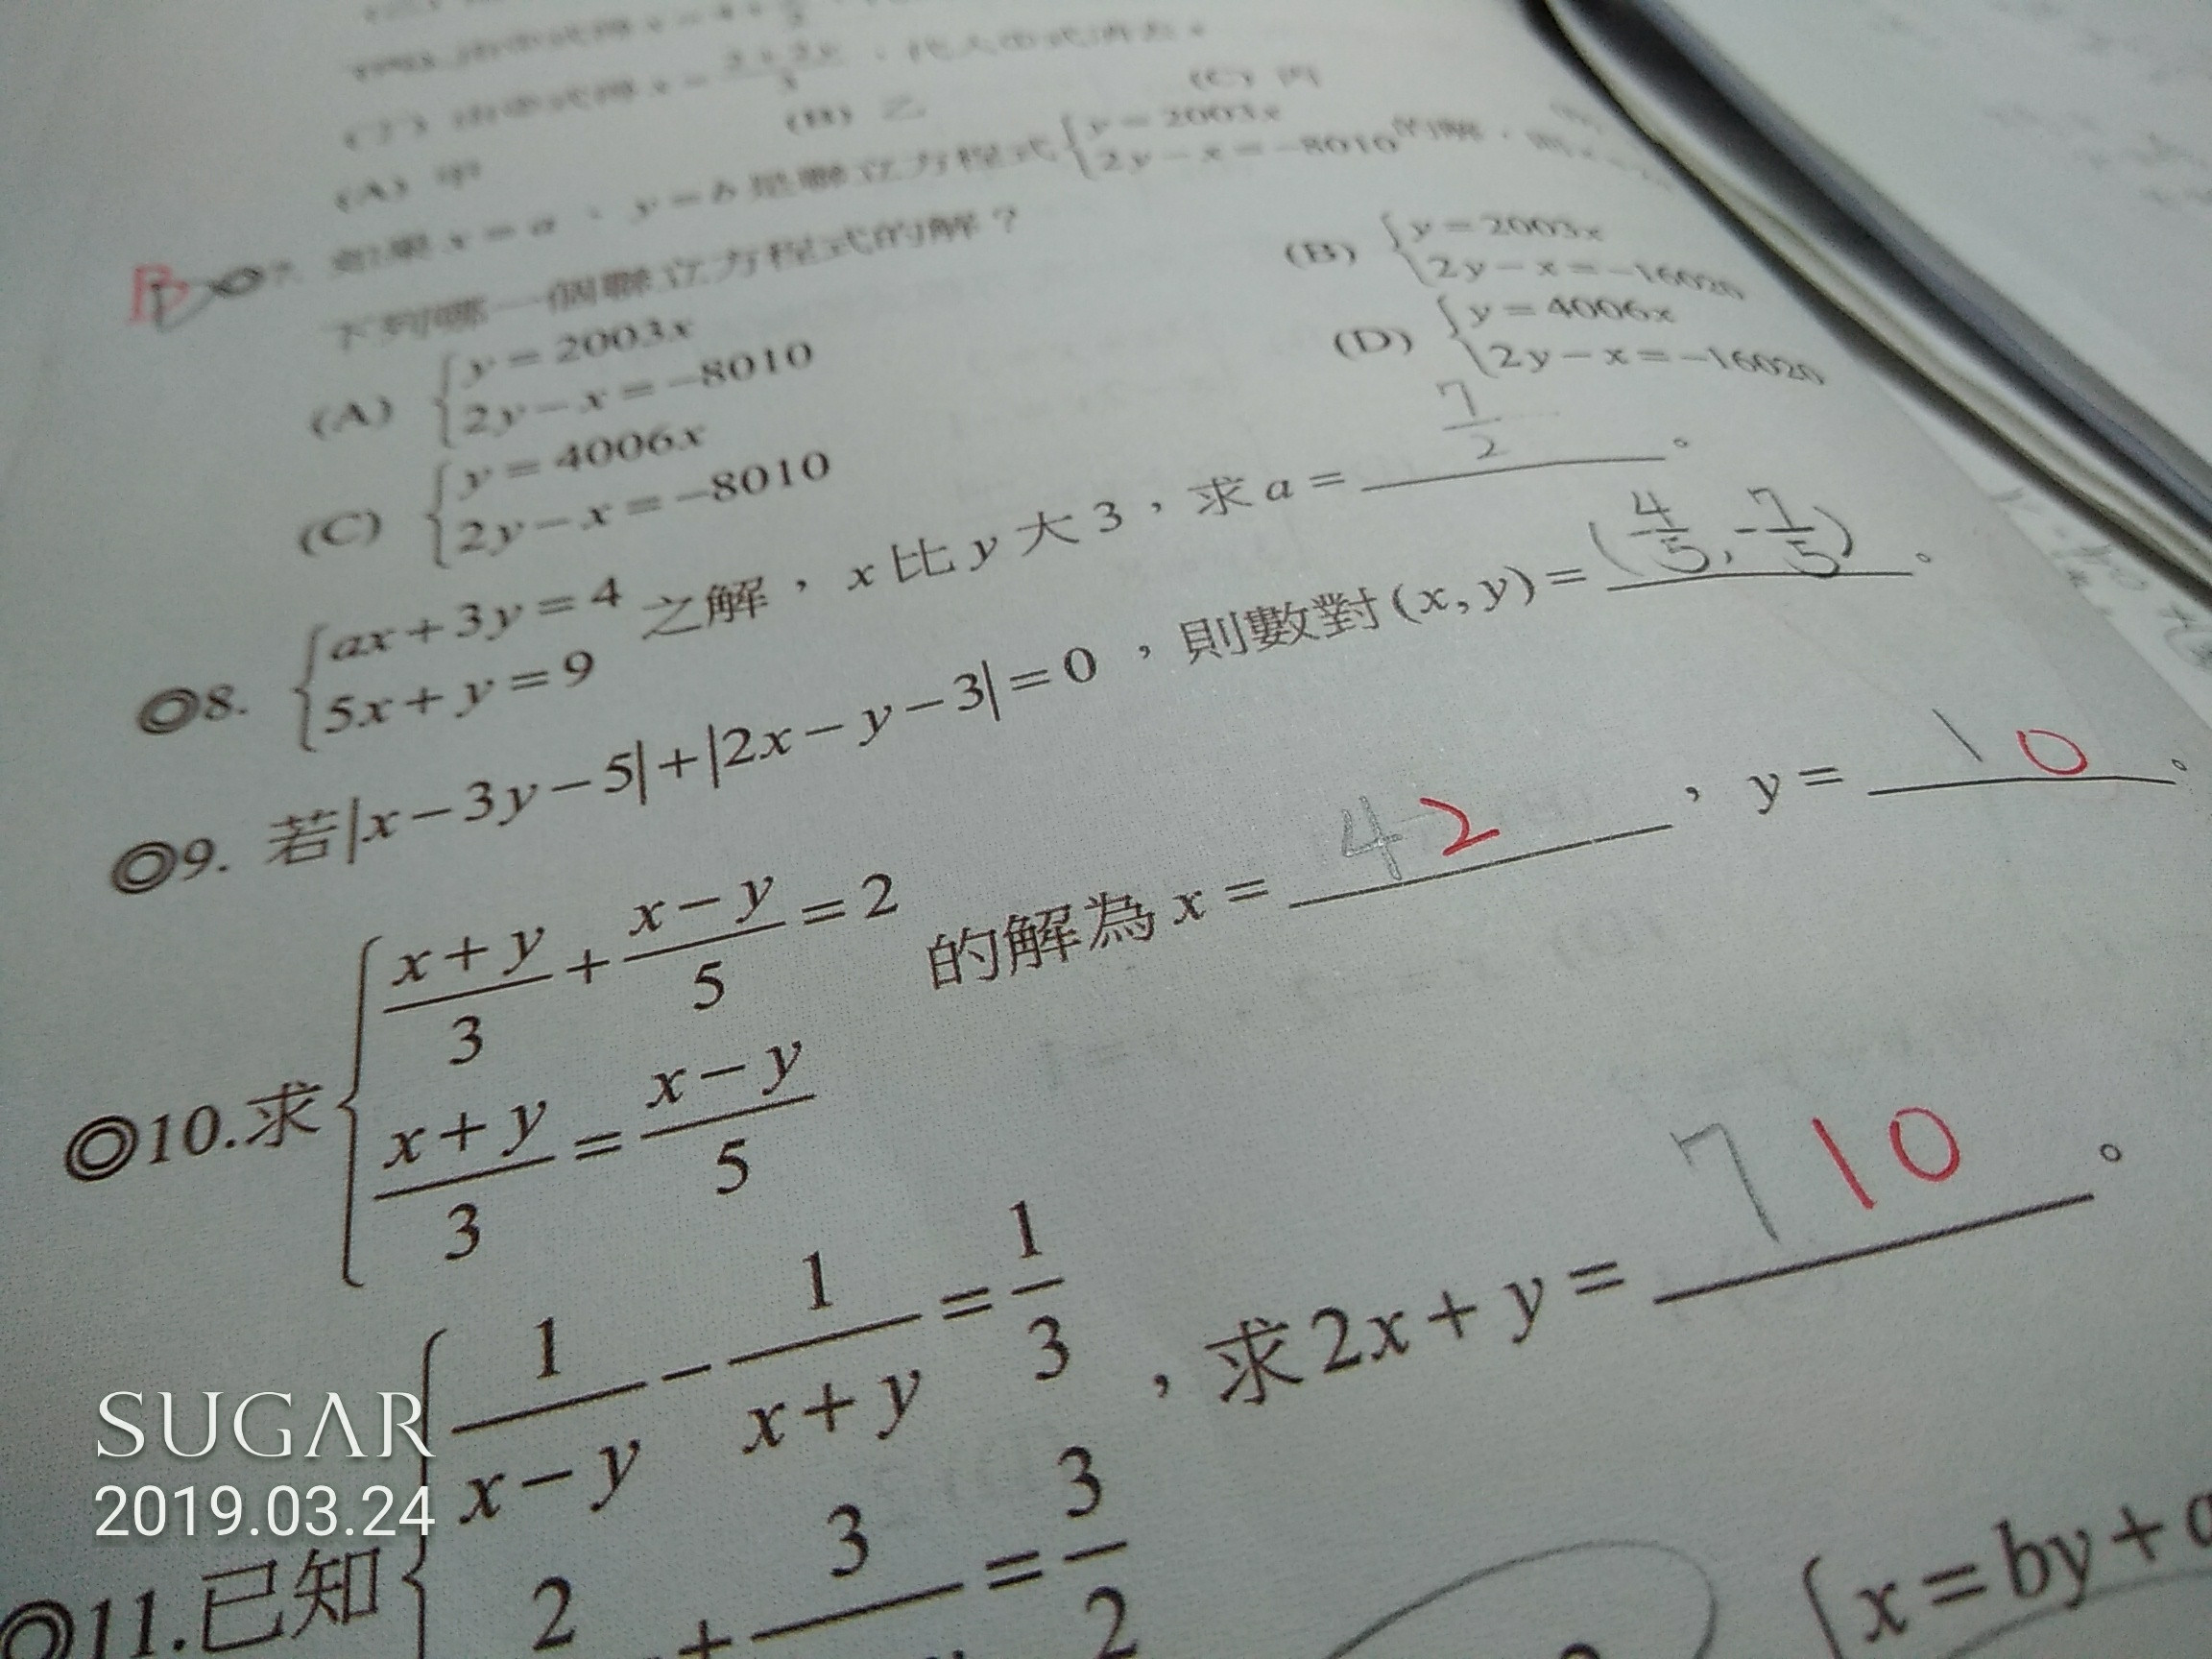 (丁) 由①式得 x =
(A) 甲 (B) 乙 (C) 丙
7. 如果 x = a、y = b 是聯立方程式 { y = 2003x 2y − x = −8010 的解,
下列哪一個聯立方程式的解?
(A) { y = 2003x 2y − x = −8010 (B) { y = 2003x 2y − x = −16020
(C) { y = 4006x 2y − x = −8010 (D) { y = 4006x 2y − x = −16020
◎8. { ax + 3y = 4 5x + y = 9 之解,x 比 y 大 3,求 a = 7/2 。
◎9. 若|x − 3y − 5| + |2x − y − 3| = 0,則數對(x, y) = (4/5, -7/5) 。
◎10. 求 { (x + y)/3 + (x − y)/5 = 2 (x + y)/3 = (x − y)/5 的解為 x = 4 2 ,y = 1 0 。
◎11. 已知 { 1/(x − y) − 1/(x + y) = 1/3 2 + 3 = 3/2 ,求 2x + y = 7 10 。
{ x = by +
SUGAR
2019.03.24